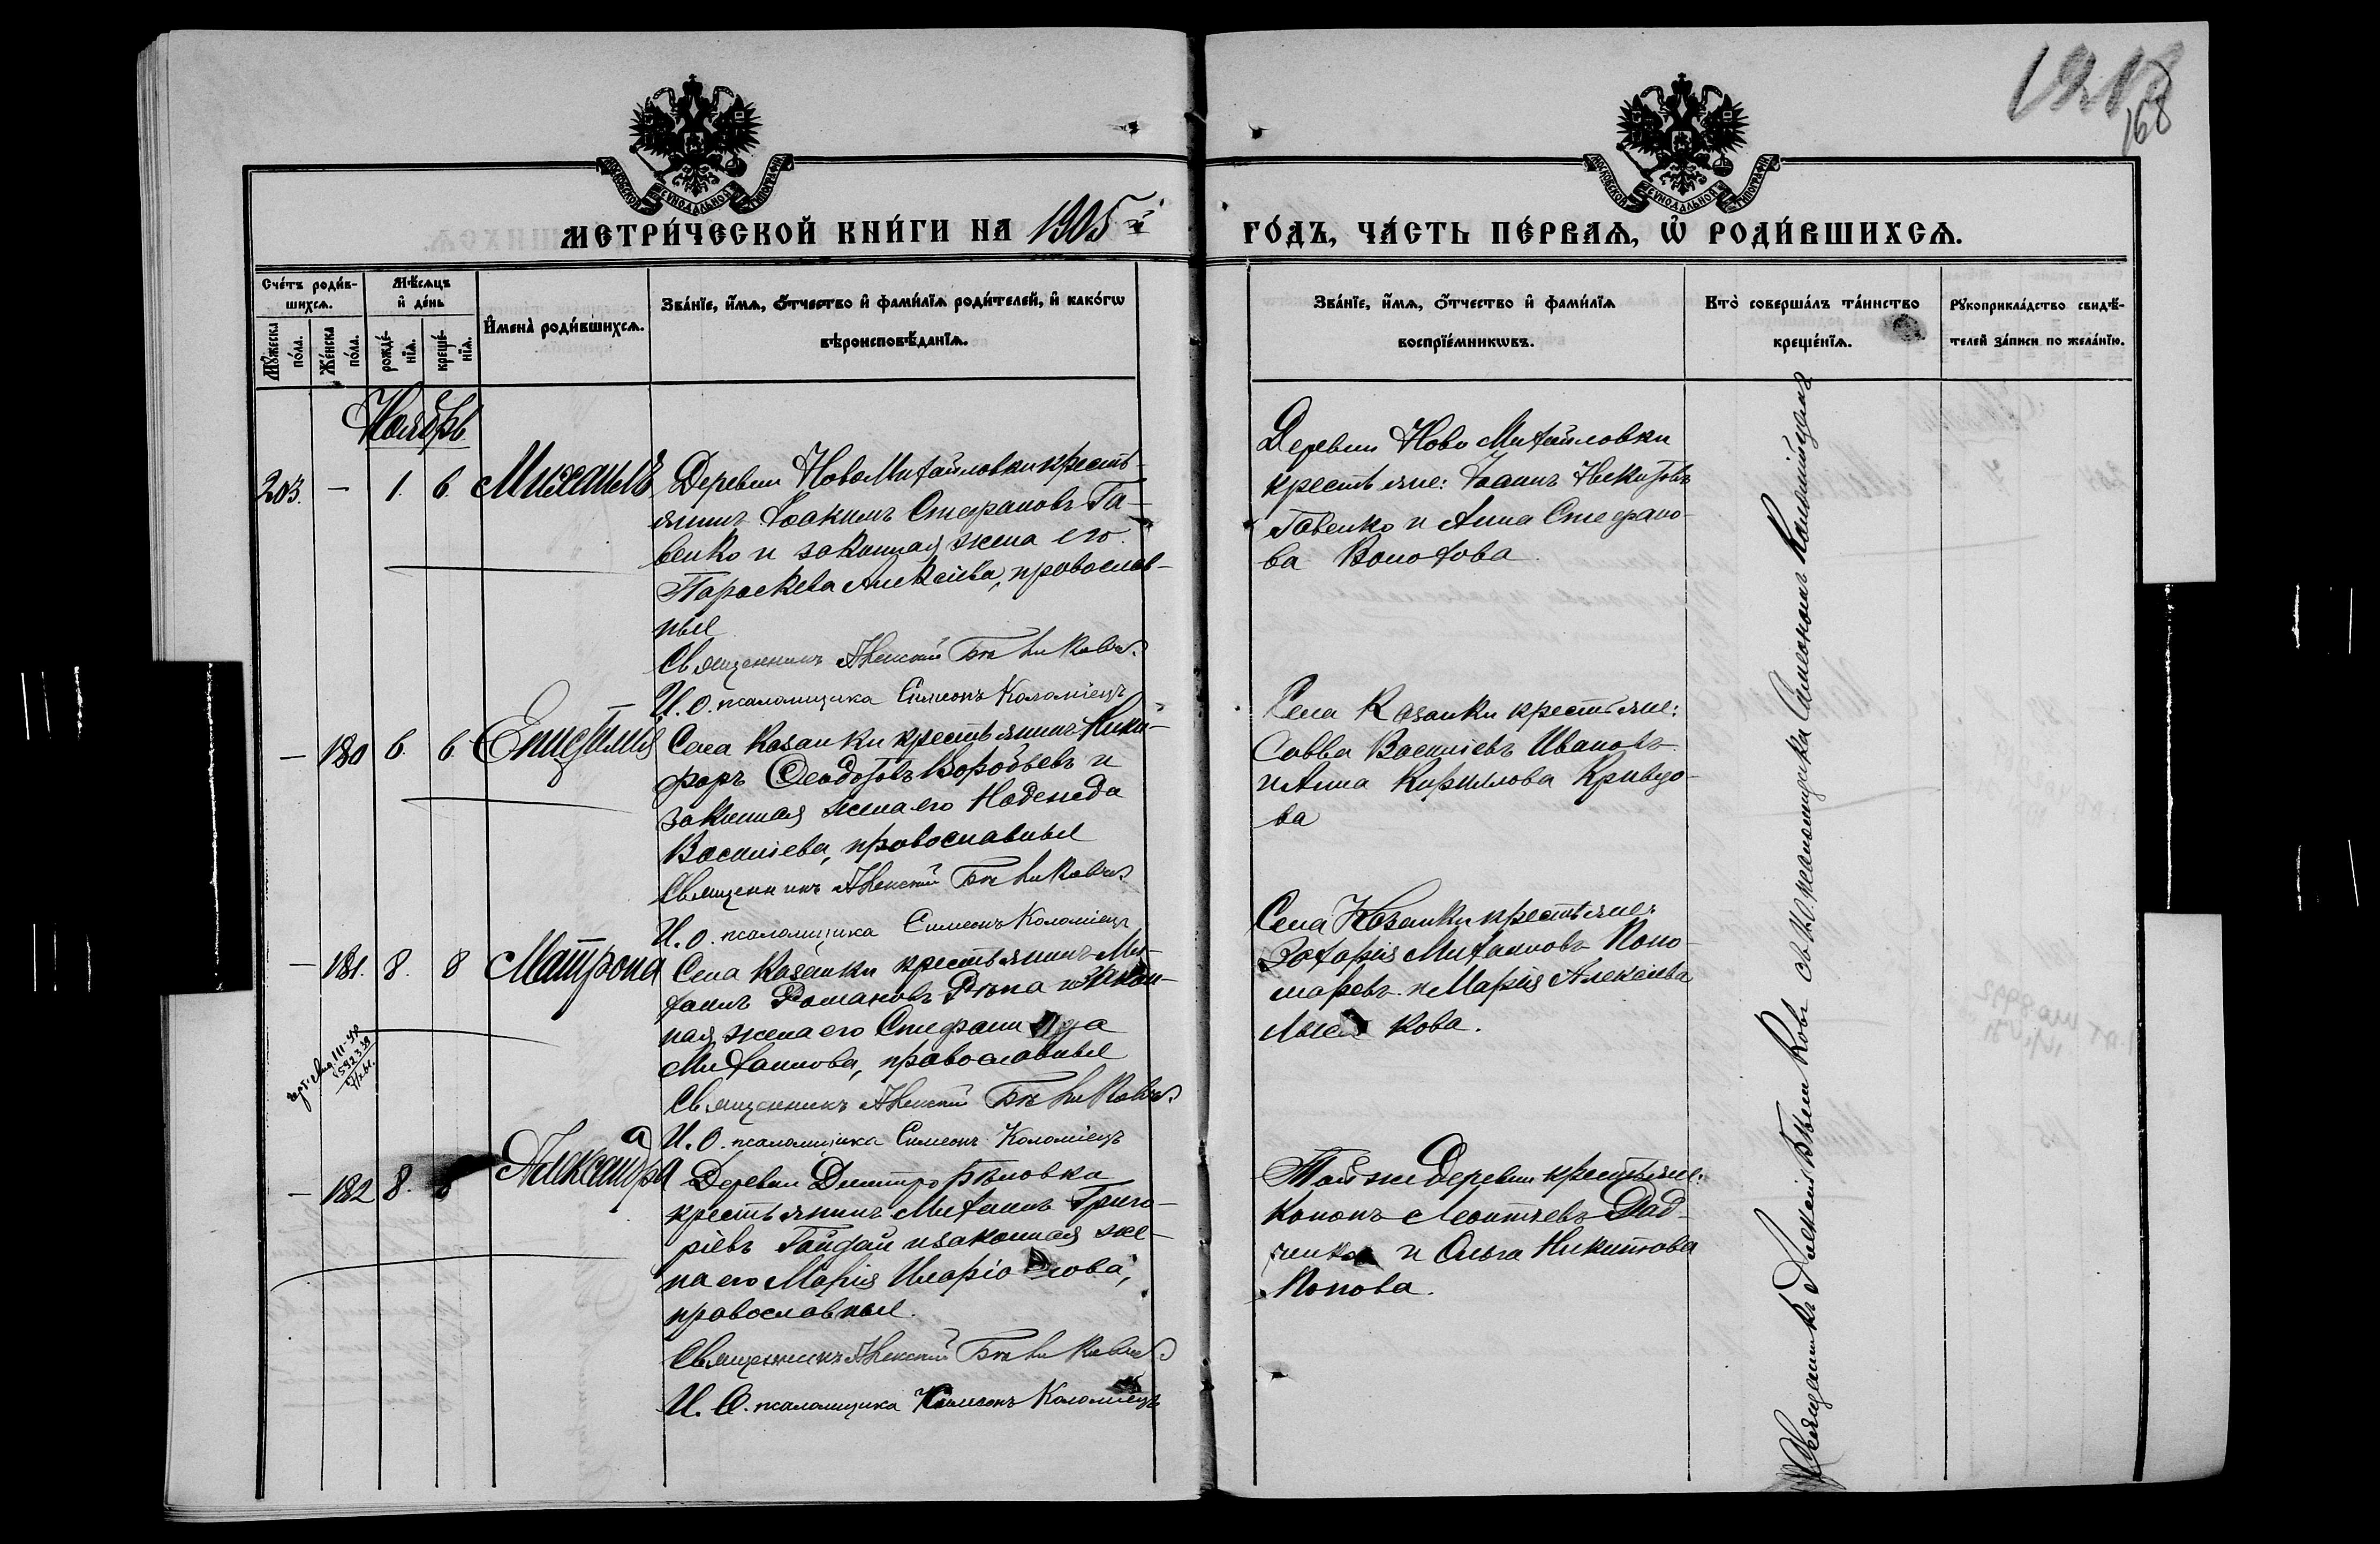 168
МОСКОВСКОЙ СѴНОДАЛЬНОЙ ТИПОГРАФІИ
МОСКОВСКОЙ СѴНОДАЛЬНОЙ ТИПОГРАФІИ
МЕТРИ́ЧЕСКОЙ КНИ́ГИ НА 1905 й
ГО́ДЪ, ЧА́СТЬ ПЕ́РВАѦ, Ѡ҆ РОДИ́ВШИХСѦ.
Сче́тъ роди́в-
шихсѧ.
Мꙋ́жеска по́ла.
Же́нска по́ла.
Мѣ́сѧцъ
и҆ де́нь
рожде́-
нїѧ.
креще́-
нїѧ.
И҆мена̀ роди́вшихсѧ.
Зва́нїе, и҆́мѧ, ѻ҆́тчество и҆ фами́лїѧ роди́телей, и҆ како́гѡ
вѣроисповѣ́данїѧ.
Зва́нїе, и҆́мѧ, ѻ҆́тчество и҆ фами́лїѧ
воспрїе́мникѡвъ.
Кто̀ соверша́лъ та́инство
креще́нїѧ.
Рꙋкоприкла́дство свидѣ́-
телей за́писи по жела́нїю.
Ноябрь
203. — 1. 6. Михаилъ
Деревни НовоМихайловки кресть-
янинъ Іоакимъ Стефановъ Га-
венко и законная жена его
Параскева Алексіева, православ-
ные
Священникъ Алексій Бѣликовъ
И. О. псаломщика Симеонъ Коломіецъ
Деревни Ново Михайловки
крестьяне: Іоаннъ Никитовъ
Гавенко и Анна Стефано-
ва
— 180 6. 6 Епистимія
Села Казанки крестьянинъ Ники-
форъ Ѳеодоровъ Воробьевъ и
законная жена его Надежда
Василіева, православные
Священникъ Алексій Бѣликовъ
И. О. псаломщика Симеонъ Коломіецъ
Села Казанки крестьяне:
Савва Василіевъ Ивановъ
и Анна Кириллова Кривцо-
ва
— 181. 8. 8 Матрона
Села Казанки крестьянинъ Ми-
хаилъ Романовъ Рюпа и закон-
ная жена его Стефанида
Михаилова, православные
Священникъ Алексій Бѣликовъ
И. О. псаломщика Симеонъ Коломіецъ
Села Казанки крестьяне:
Захарія Михаиловъ Поно-
маревъ и Марія Алексіева
— 182 8. 8 Александра
Деревни ДмитроБѣловка
крестьянинъ Михаилъ Григо-
ріевъ Гайдай и законная же-
на его Марія Иларіонова,
православные.
Священникъ Алексій Бѣликовъ
И. О. псаломщика Симеонъ Коломіецъ
Той же деревни крестьяне:
Кононъ Леонтіевъ
и Ольга Никитова
Попова.
Священникъ Алексій Бѣликовъ съ И.О. псаломщика Симеономъ Коломійцемъ